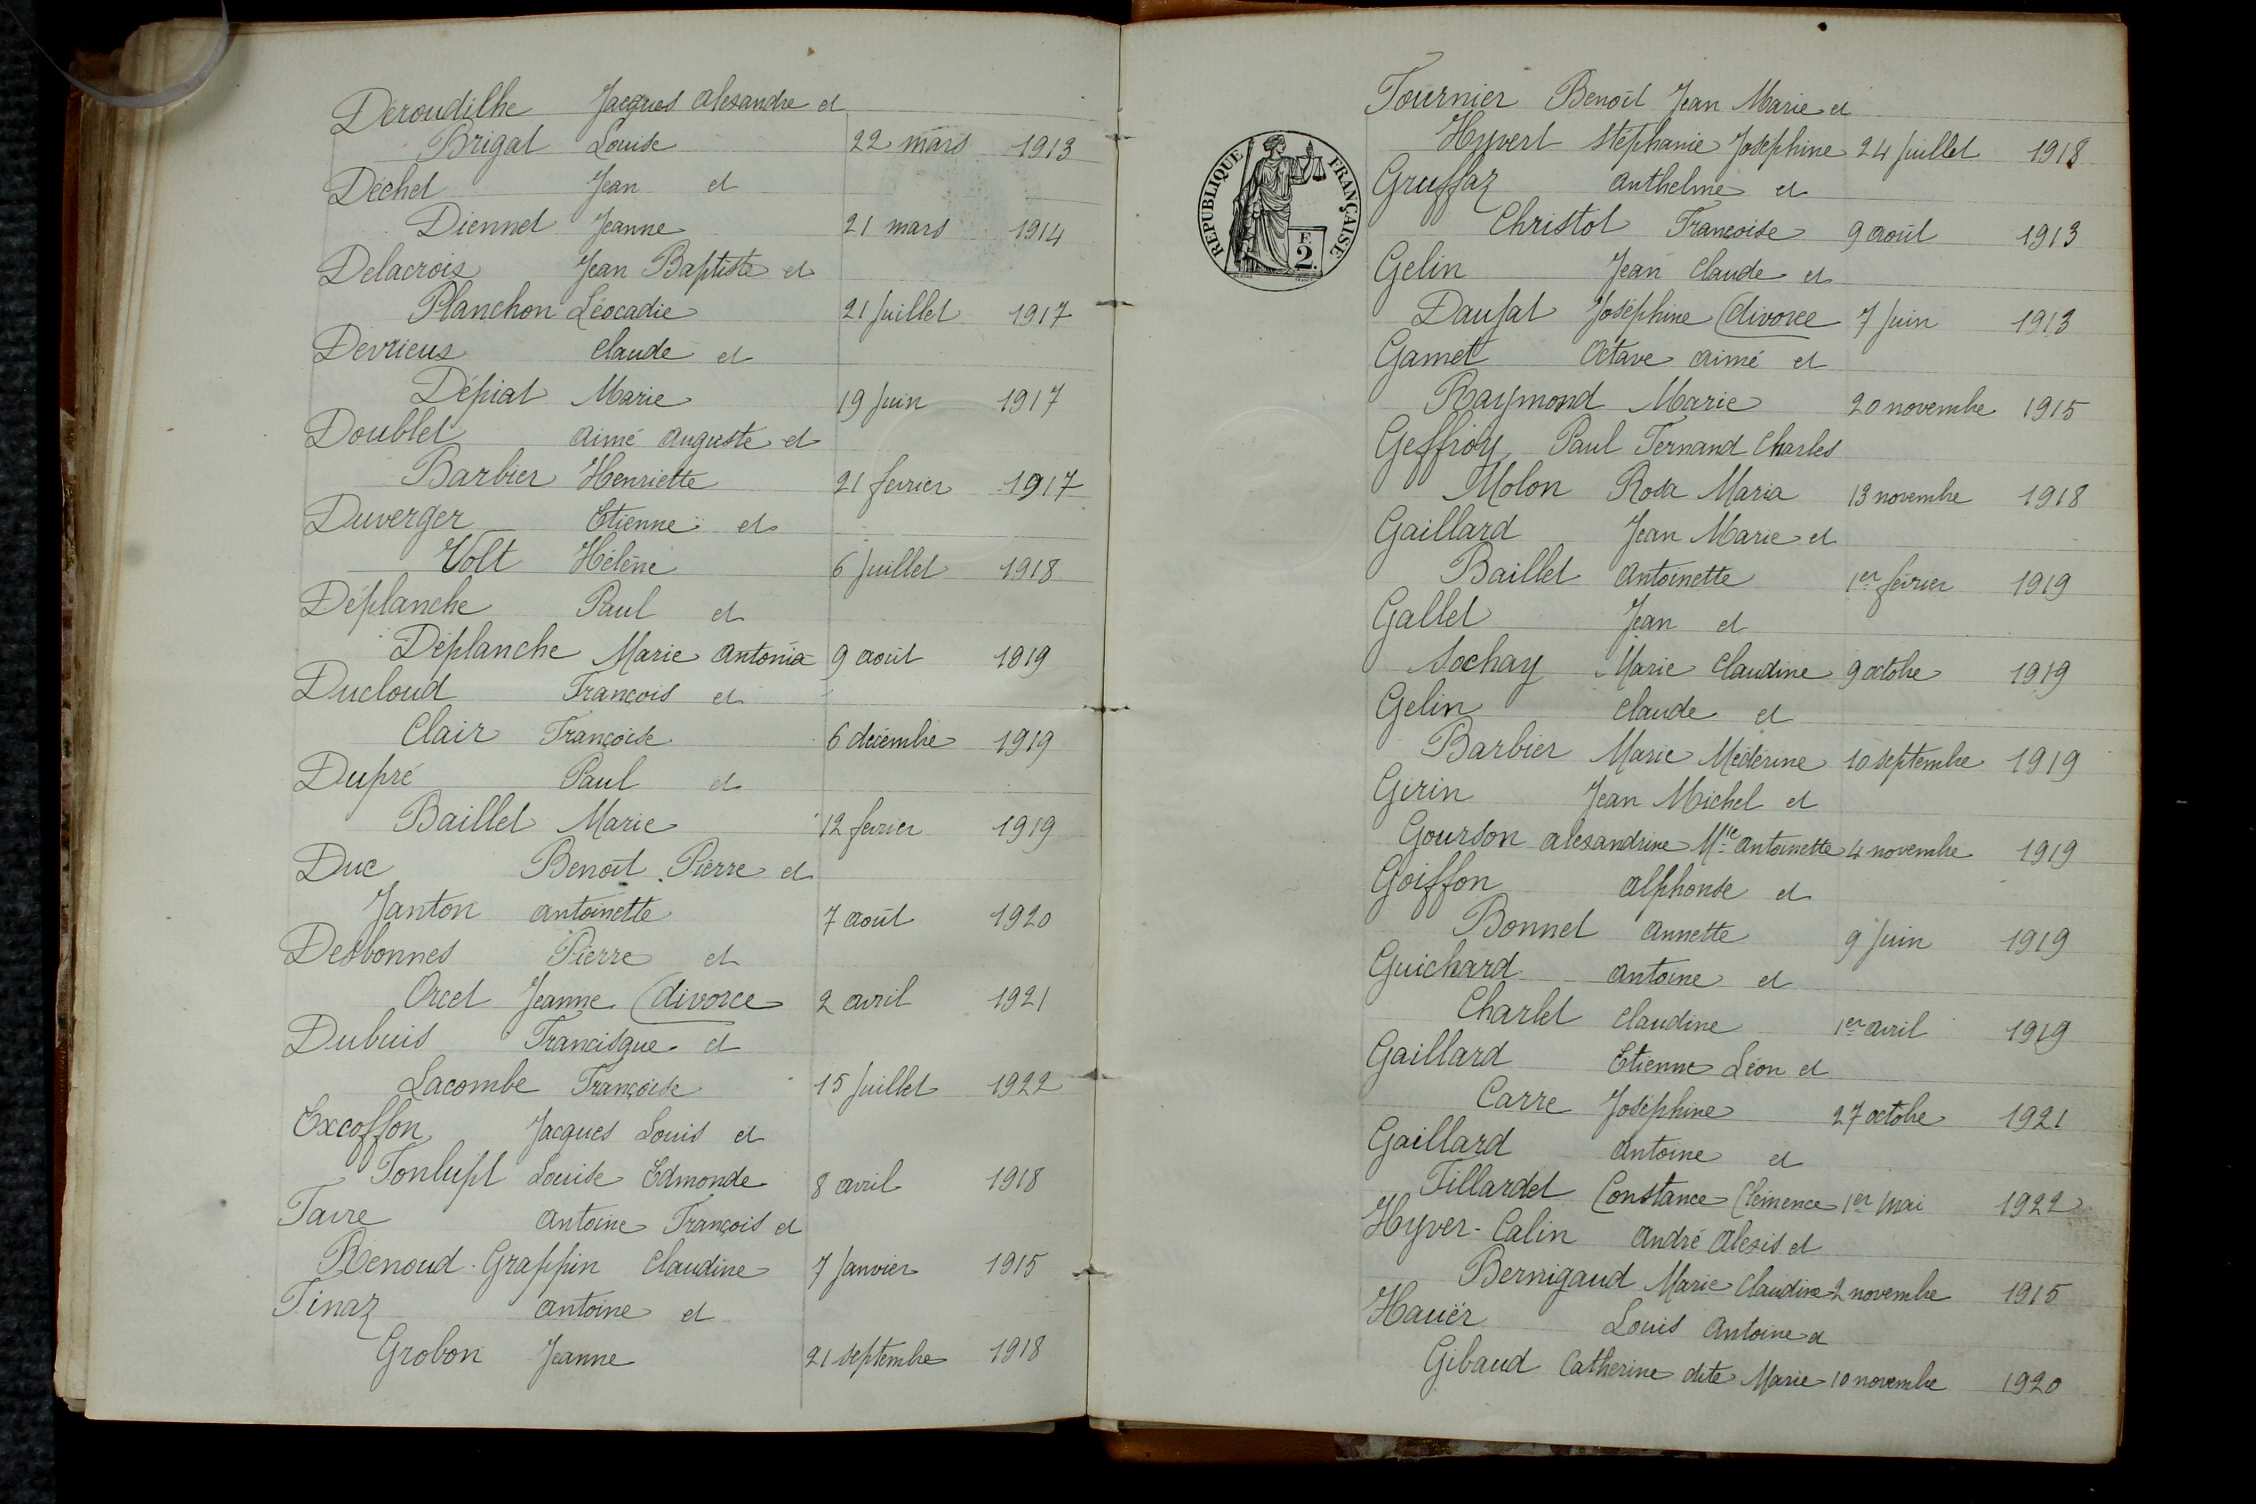 Deroudilhe Jacques Alexandre et
Brigat Louise 22 mars 1913
Déchet Jean et
Diennet Jeanne 21 mars 1914
Delacroix Jean Baptiste et
Planchon Léocadie 21 Juillet 1917
Devrieux Claude et
Dépiat Marie 19 Juin 1917
Doublet Aimé Auguste et
Barbier Henriette 21 fevrier 1917
Duverger Etienne et
Volt Hélène 6 Juillet 1918
Déplanche Paul et
Déplanche Marie Antonia 9 août 1919
Ducloud François et
Clair Françoise 6 décembre 1919
Dupré Paul et
Baillet Marie 12 fevrier 1919
Duc Benoît Pierre et
Janton Antoinette 7 août 1920
Desbonnes Pierre et
Orcet Jeanne (divorce 2 avril 1921
Dubuis Francisque et
Lacombe Françoise 15 Juillet 1922
Excoffon Jacques Louis et
Fonlupt Louise Edmonde 8 avril 1918
Favre Antoine François et
Renoud-Grappin Claudine 7 Janvier 1915
Finaz Antoine et
Grobon Jeanne 21 septembre 1918
Fournier Benoît Jean Marie et
Hyvert Stéphanie Joséphine 24 Juillet 1918
RÉPUBLIQUE FRANÇAISE
F.
2.
Gruffaz Anthelme et
Christol Françoise 9 août 1913
Gelin Jean Claude et
Daujat Joséphine (divorce 7 Juin 1913
Gamet Octave Aimé et
Raymond Marie 20 novembre 1915
Geffroy Paul Fernand Charles
Molon Rosa Maria 13 novembre 1918
Gaillard Jean Marie et
Baillet Antoinette 1er février 1919
Gallet Jean et
Sochay Marie Claudine 9 octobre 1919
Gelin Claude et
Barbier Marie Médérine 10 septembre 1919
Girin Jean Michel et
Gourson Alexandrine Mie Antoinette 4 novembre 1919
Goiffon Alphonse et
Bonnet Annette 9 Juin 1919
Guichard Antoine et
Charlet Claudine 1er avril 1919
Gaillard Etienne Léon et
Carre Joséphine 27 octobre 1921
Gaillard Antoine et
Tillardet Constance Clémence 1er Mai 1922
Hyver-Calin André Alexis et
Bernigaud Marie Claudine 2 novembre 1915
Hauër Louis Antoine et
Gibaud Catherine dite Marie 10 novembre 1920